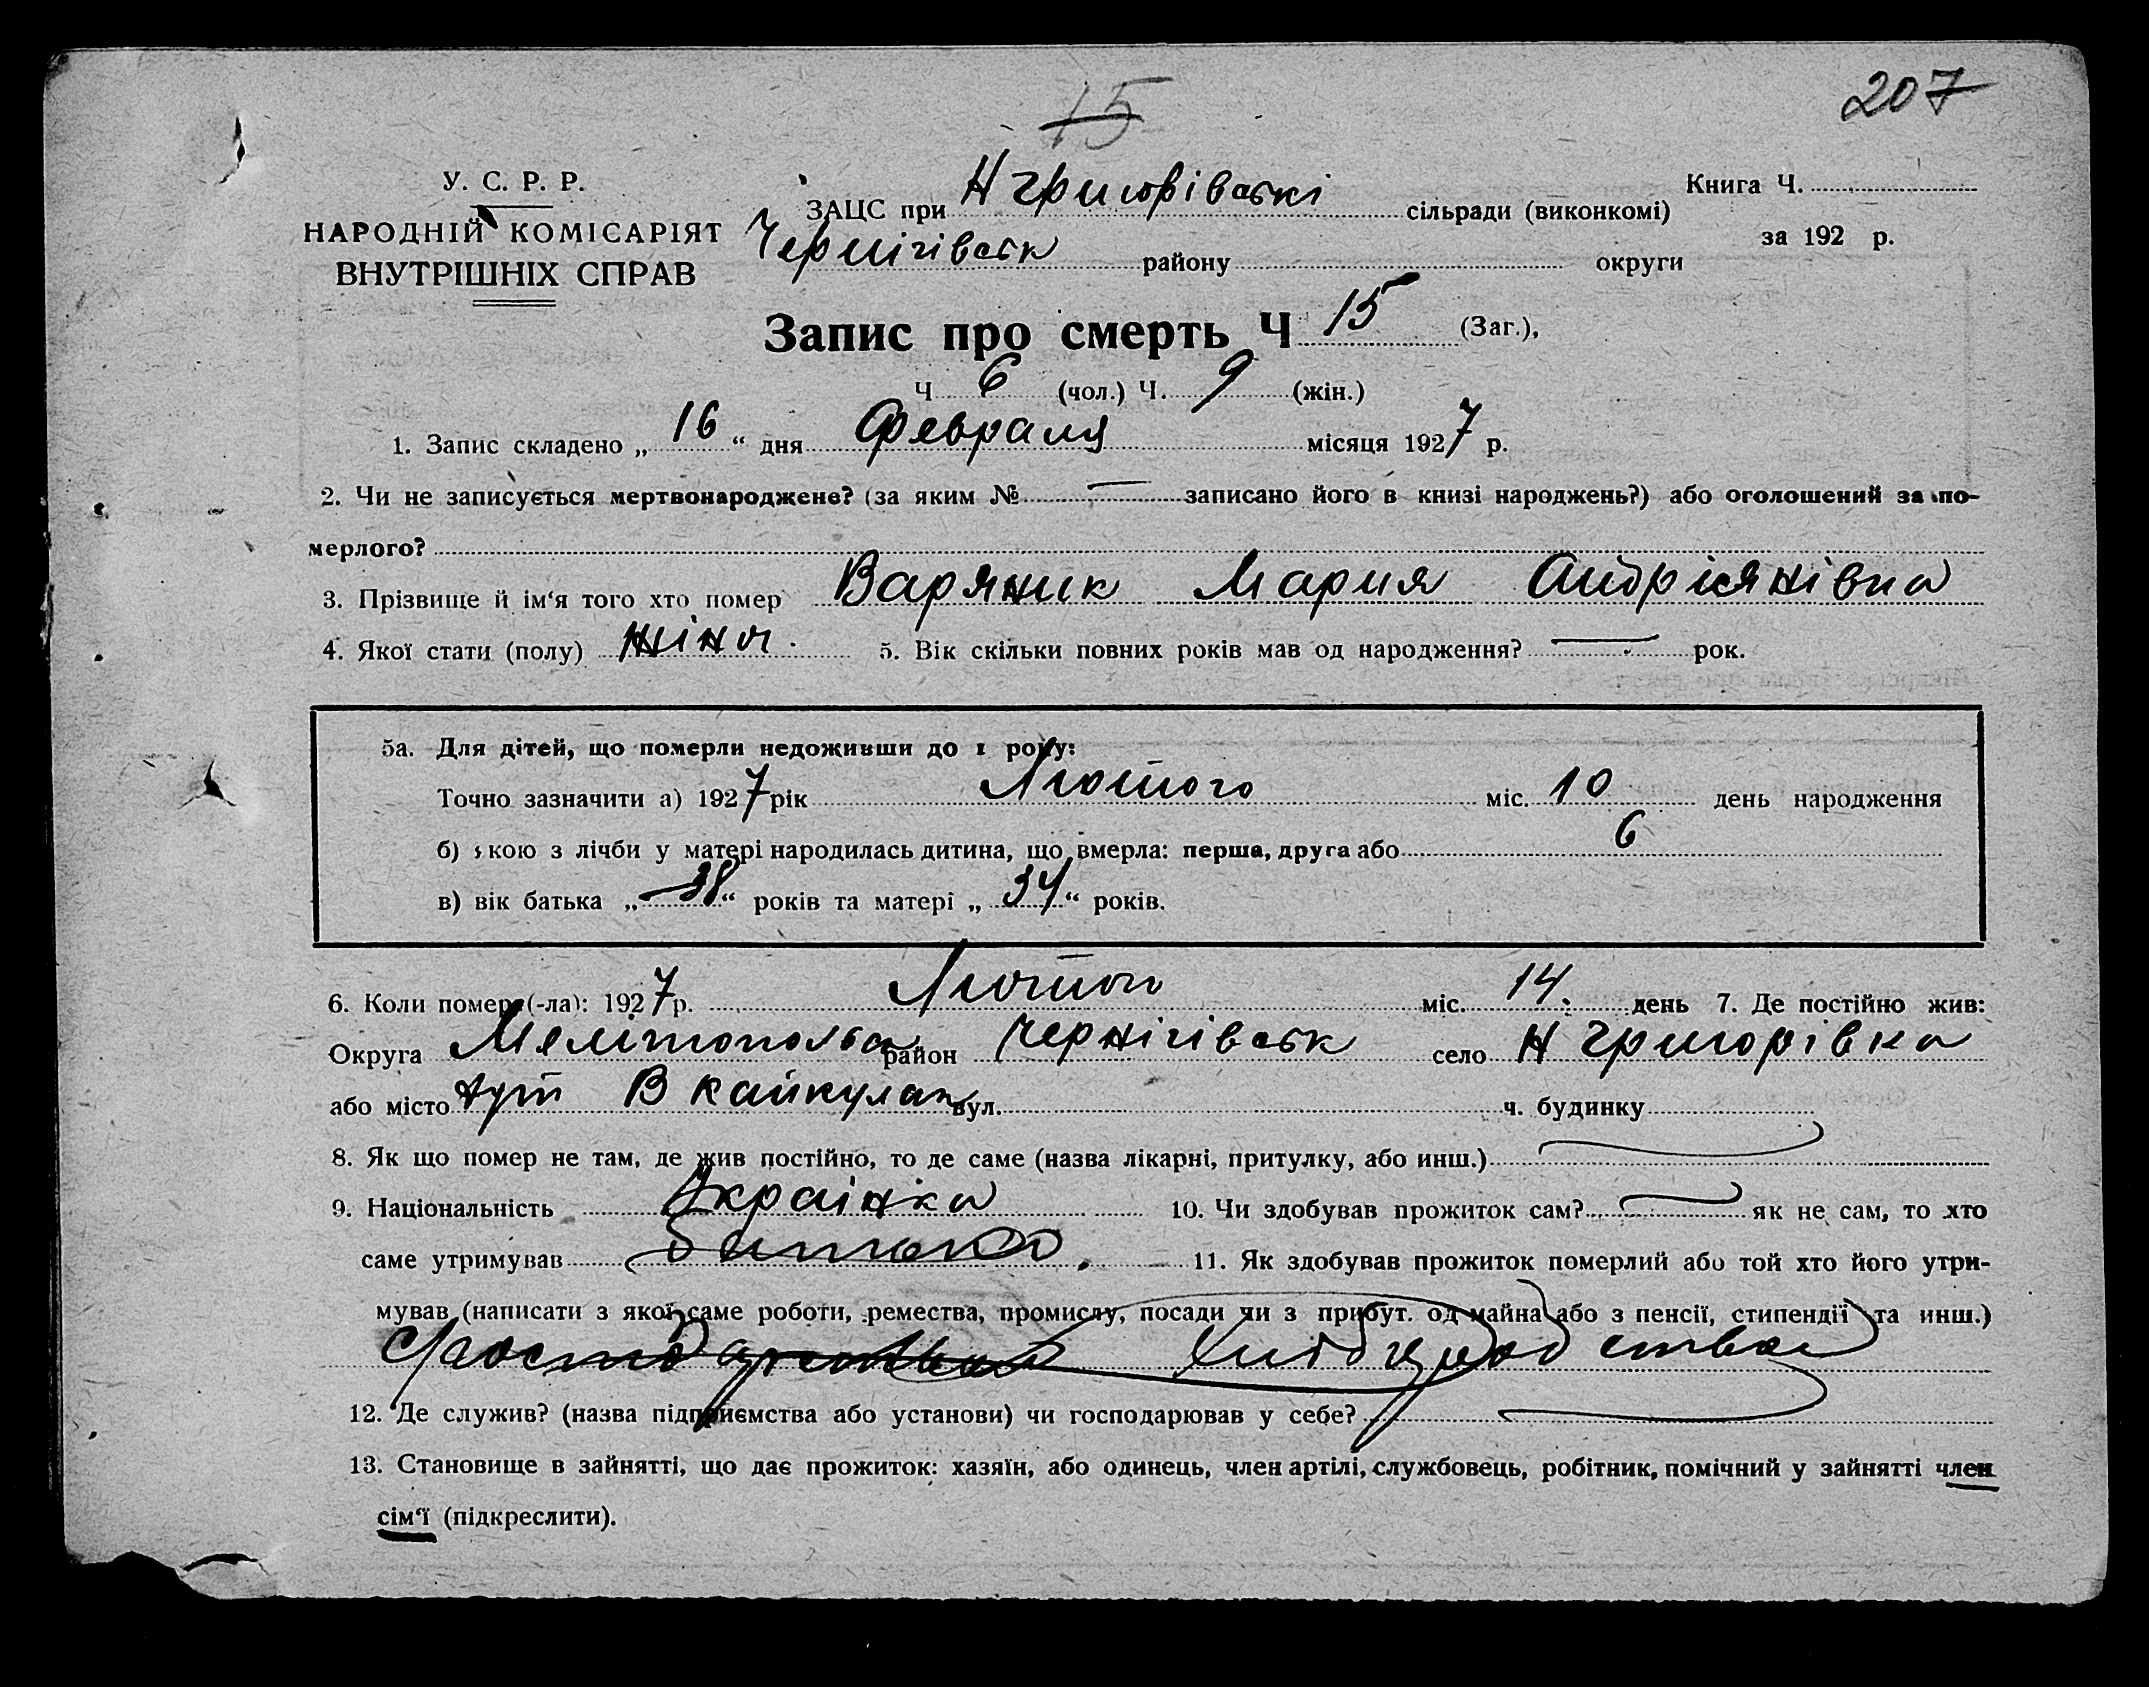 207
15
У. С. Р. Р.
НАРОДНІЙ КОМІСАРІЯТ
ВНУТРІШНІХ СПРАВ
ЗАЦС при Н Григорівські сільради (виконкомі)
Чернігівськ району округи
Книга Ч.
за 192 р.
Запис про смерть Ч 15 (Заг.),
Ч 6 (чол.) Ч. 9 (жін.)
1. Запис складено „ 16 “ дня Февраля місяця 1927 р.
2. Чи не записується мертвонароджене? (за яким № — записано його в книзі народжень?) або оголошений за по-
мерлого?
3. Прізвище й ім‘я того хто помер Варяник Мария Андріянівна
4. Якої стати (полу) жіноч. 5. Вік скільки повних років мав од народження? — рок.
5а. Для дітей, що померли недоживши до 1 року:
Точно зазначити а) 1927 рік Лютого міс. 10 день народження
б) якою з лічби у матері народилась дитина, що вмерла: перша, друга або 6
в) вік батька „ 38 “ років та матері „ 34 “ років.
6. Коли помер (-ла): 1927 р. Лютого міс. 14 день 7. Де постійно жив:
Округа Мелітополь район Чернігівськ село Н Григорівка
або місто вул. ч. будинку
8. Як що помер не там, де жив постійно, то де саме (назва лікарні, притулку, або инш.)
9. Національність Українка 10. Чи здобував прожиток сам? — як не сам, то хто
саме утримував батько. 11. Як здобував прожиток померлий або той хто його утри-
мував (написати з якої саме роботи, ремества, промислу, посади чи з прибут. од майна або з пенсії, стипендії та инш.)
12. Де служив? (назва підприємства або установи) чи господарював у себе?
13. Становище в зайнятті, що дає прожиток: хазяїн, або одинець, член артілі, службовець, робітник, помічний у зайнятті член
сім‘ї (підкреслити).